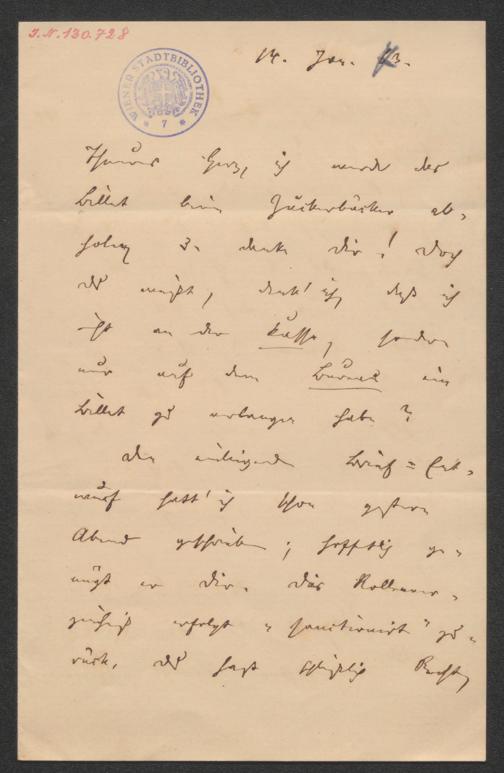 I.N. 130.728
WIENER STADTBIBLIOTHEK
7
14. Jan. 3.
Theures Herz, ich werde das
Billet beim Zuckerbäcker ab-
holen u. danke Dir! Doch
Du weißt, denk' ich, daß ich
nicht an der Kasse, sondern
nur auf dem Bureau ein
Billet zu verlangen habe?
Den einliegenden Brief=Ent-
wurf hatt' ich schon gestern
Abend geschrieben; hoffentlich ge-
nügt er Dir. Das Rollenver-
zeichniß erfolgt "sanctionirt" zu-
rück. Du hast schließlich Recht,